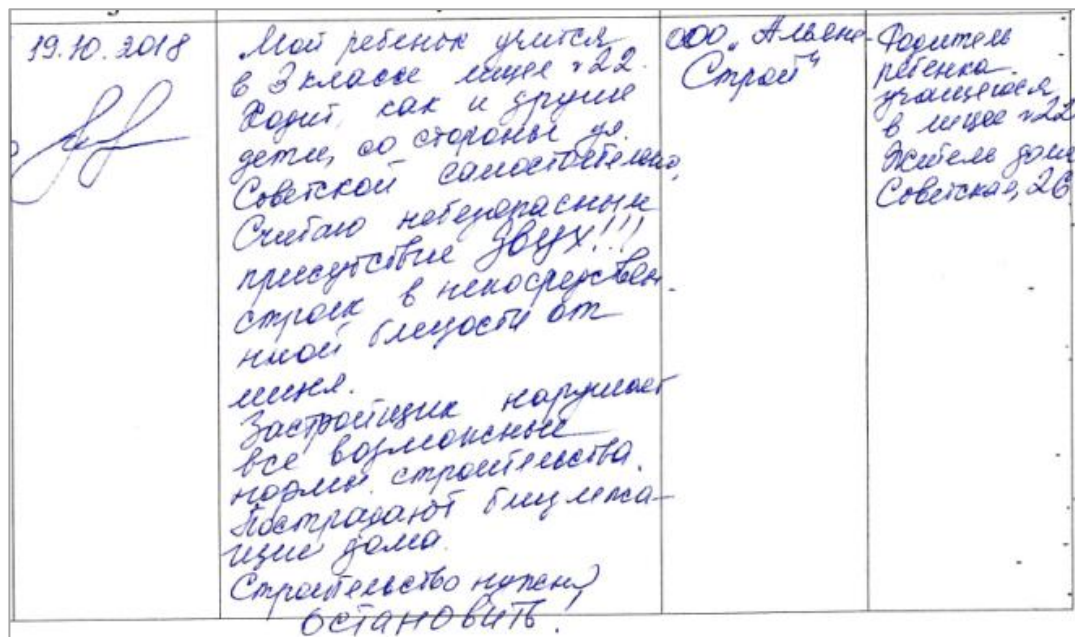 19.10.2018
Мой ребенок учится
в 3 классе лицее №22.
Ходит, как и другие
дети, со стороны ул.
Советской самостоятельно,
Считаю небезопасным
присутствие ДВУХ!!!
строек в непосредствен
нной близости от
лицея.
Застройщик нарушает
все возможные
нормы строительства.
Пострадают близлежа-
щие дома.
Строительство нужно
ОСТАНОВИТЬ!
ООО „Альянс-
Строй"
Родитель
ребенка
учащегося
в лицее №22
Житель дома
Советская, 26